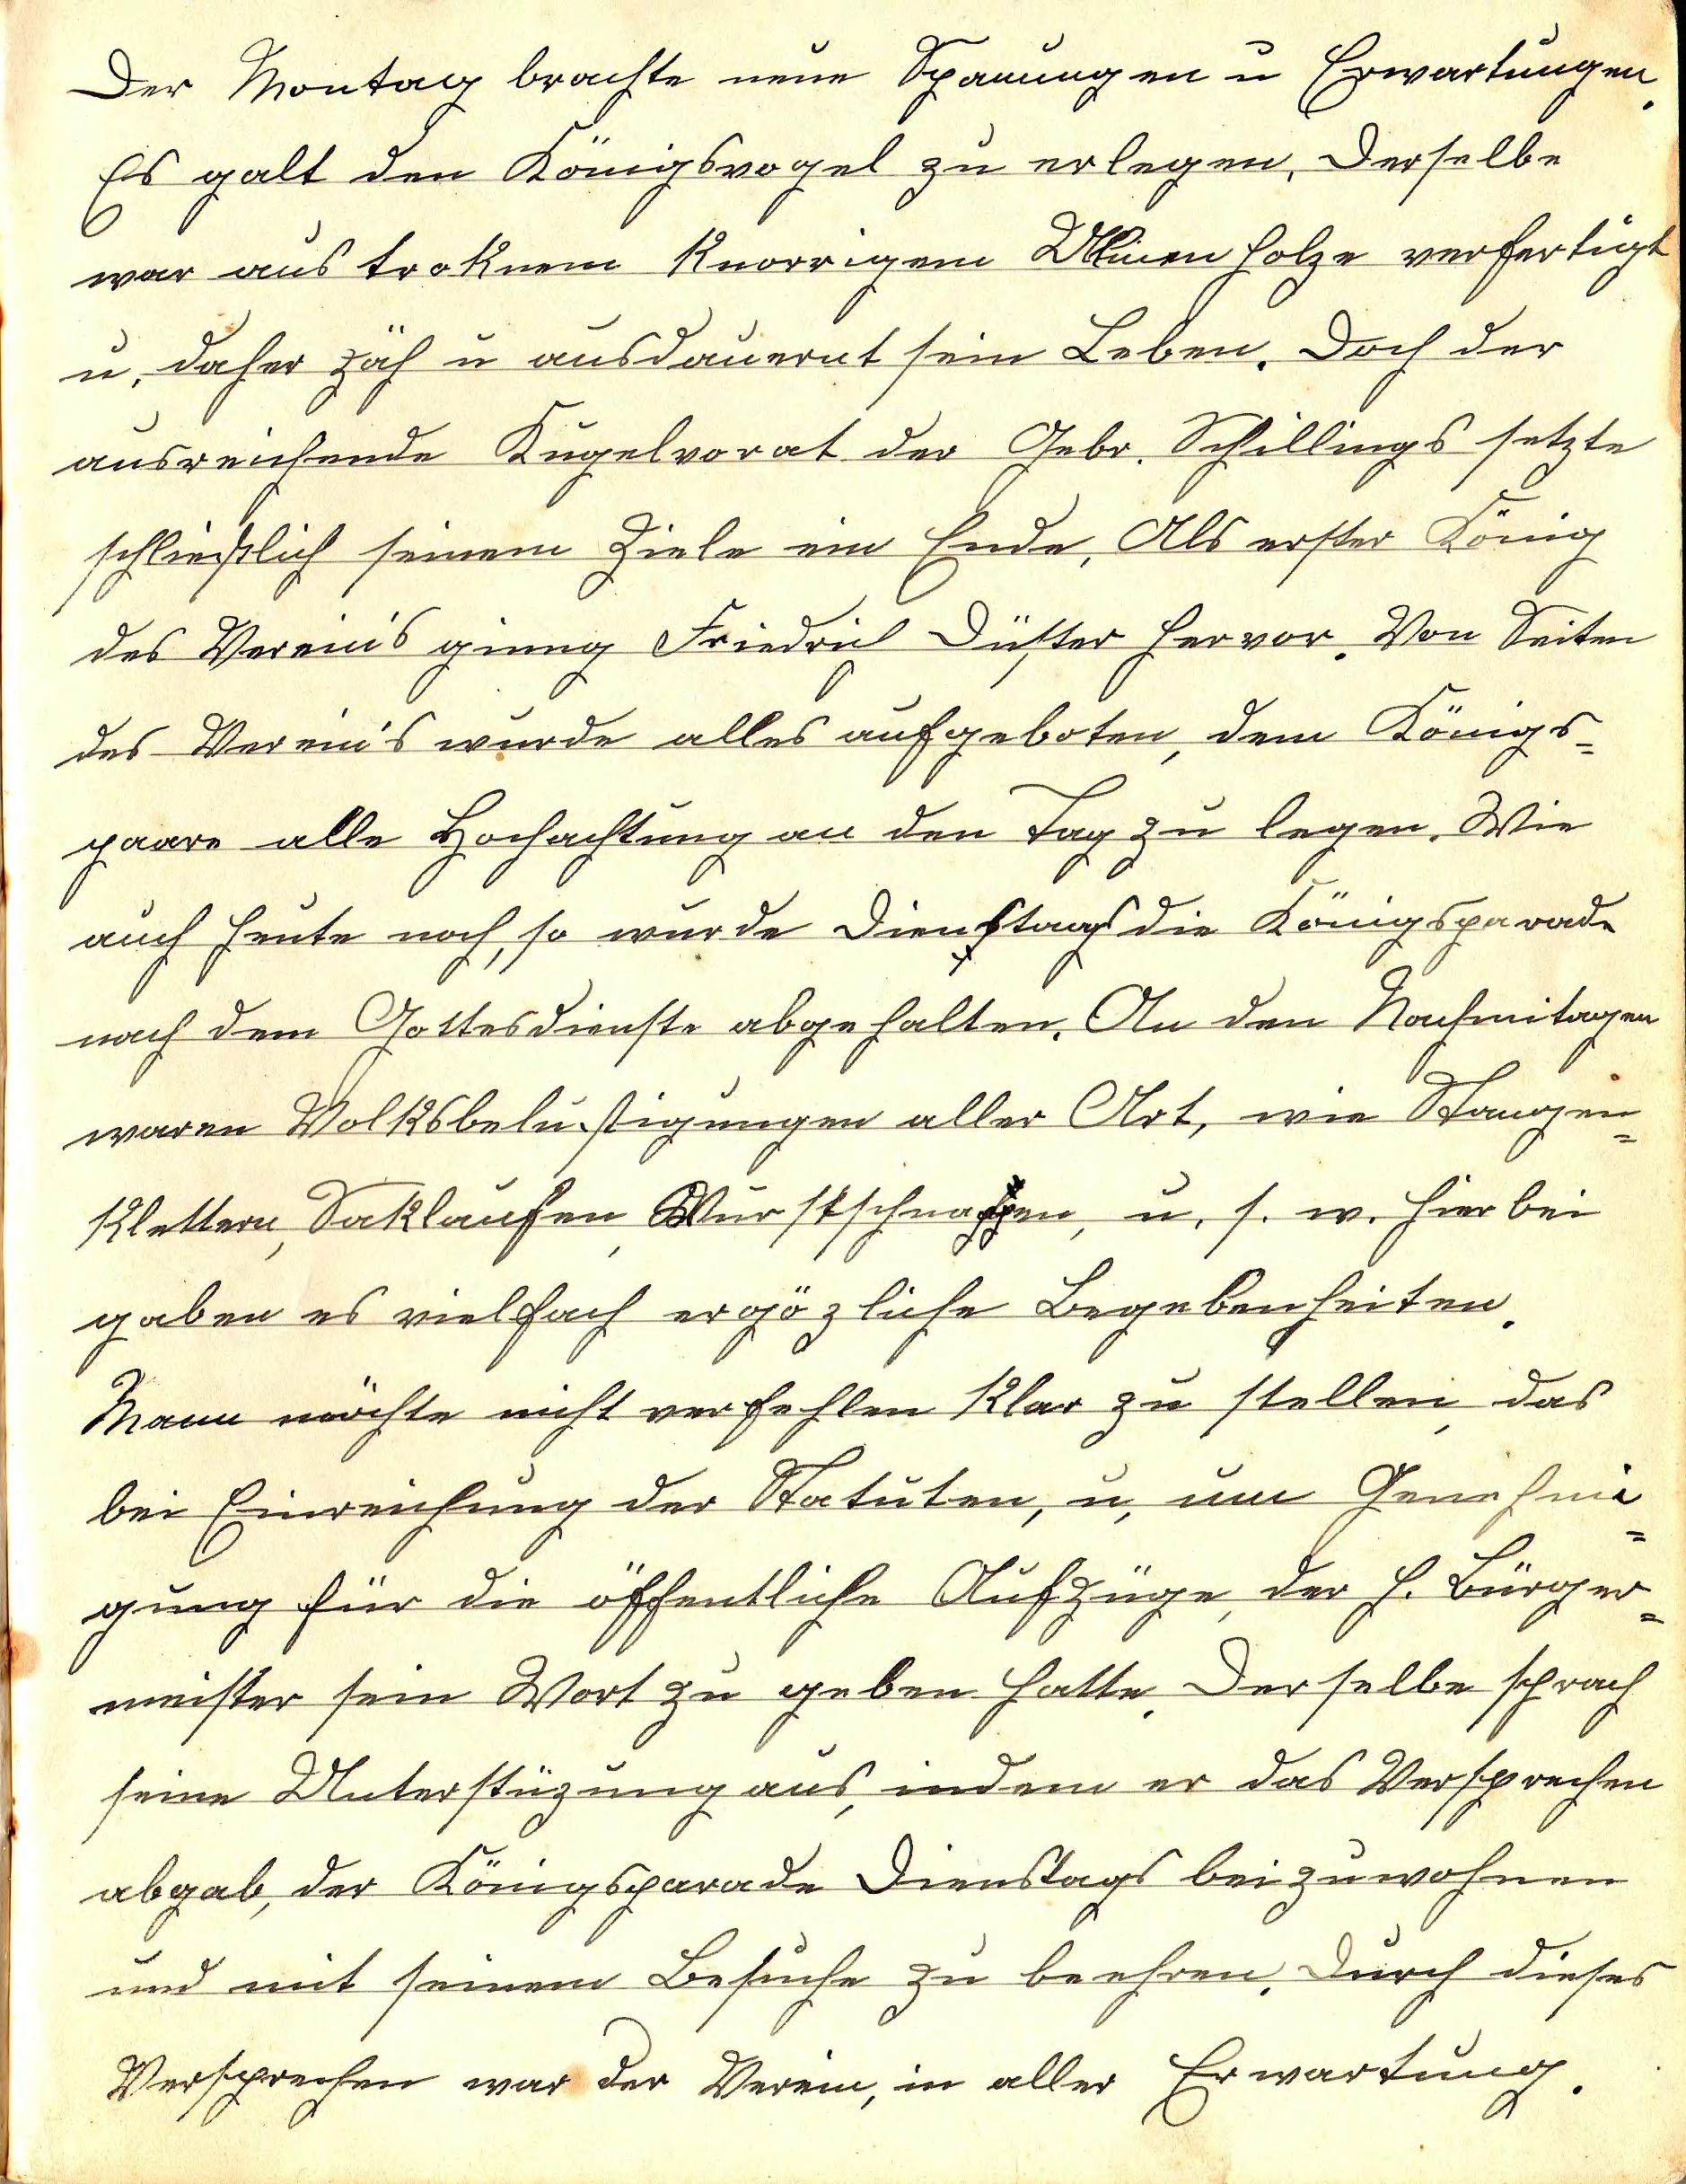 Der Montag brachte neue Spanungen u Erwartungen.
Es galt den Königsvogel zu erlegen. Derselbe
war aus troknem knorrigem Ulmenholze verfertigt
u. daher zäh u ausdauernt sein Leben. Doch der
ausreichende Kugelvorat der Gebr. Schillings setzte
schließlich seinem Ziele ein Ende. Als erster König
des Verein's ginng Friedrich Düster hervor. Von Seiten
des Verein's wurde alles aufgeboten, dem Königs=
paare alle Hochachtung an den Tag zu legen. Wie
auch heute noch, so wurde Dienstags die Königsparade
nach dem Gottesdienste abgehalten. An den Nachmitagen
waren Volksbelustigungen aller Art, wie Stangen=
klettern, Saklaufen, Wurstschnappen, u. s. w. hierbei
gaben es vielfach ergözliche Begebenheiten.
Mann möchte nicht verfehlen klar zu stellen, das
bei Einreichung der Statuten, u, um Genehmi=
gung für die öffentliche Aufzüge, der H. Bürger=
meister sein Wort zu geben hatte. Derselbe sprach
seine Unterstüzung aus, indem er das Versprechen
abgab, der Königsparade Dienstags beizuwohnen
und mit seinem Besuche zu beehren. Durch dieses
Versprechen war der Verein, in aller Erwartung.